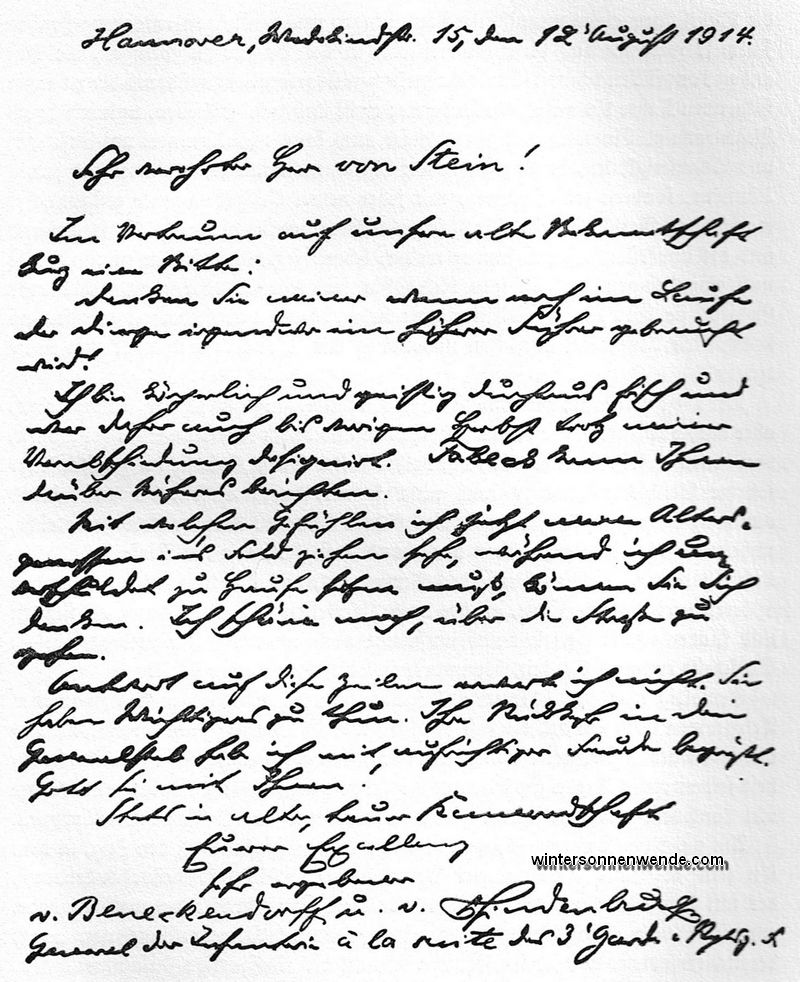 Hannover, Wedekindstr. 15, den 12' August 1914.
Sehr verehrter Herr von Stein!
Im Vertrauen auf unsere alte Bekanntschaft
eine Bitte:
Denken Sie meiner wenn noch im Laufe
der Dinge irgendwo ein höherer Führer gebraucht
wird!
Ich bin körperlich und geistig durchaus frisch und
war daher auch bis vorigen Herbst trotz meiner
Verabschiedung designirt. Fabeck kann Ihnen
darüber Näheres berichten.
Mit welchen Gefühlen ich jetzt meine Alters-
genossen ins Feld ziehen sehe, während ich un-
verschuldet zu Hause sitzen muß, können Sie sich
denken. Ich schäme mich, über die Straße zu
gehen.
Antwort auf diese Zeilen erwarte ich nicht. Sie
haben Wichtigeres zu thun. Ihre Rückkehr in den
Generalstab habe ich mit aufrichtiger Freude begrüßt.
Gott sei mit Ihnen!
Stets in alter, treuer Kameradschaft
Eurer Excellenz
sehr ergebener
v. Beneckendorff u. v. Hindenburg
General der Infanterie à la suite des 3' Garde-Regts. z. F.
wintersonnenwende.com